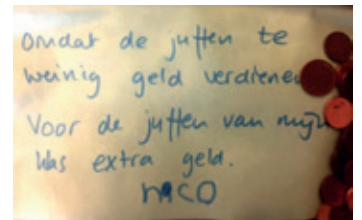 Omdat de juffen te
weinig geld verdienen
Voor de juffen van mijn
klas extra geld.
NICO